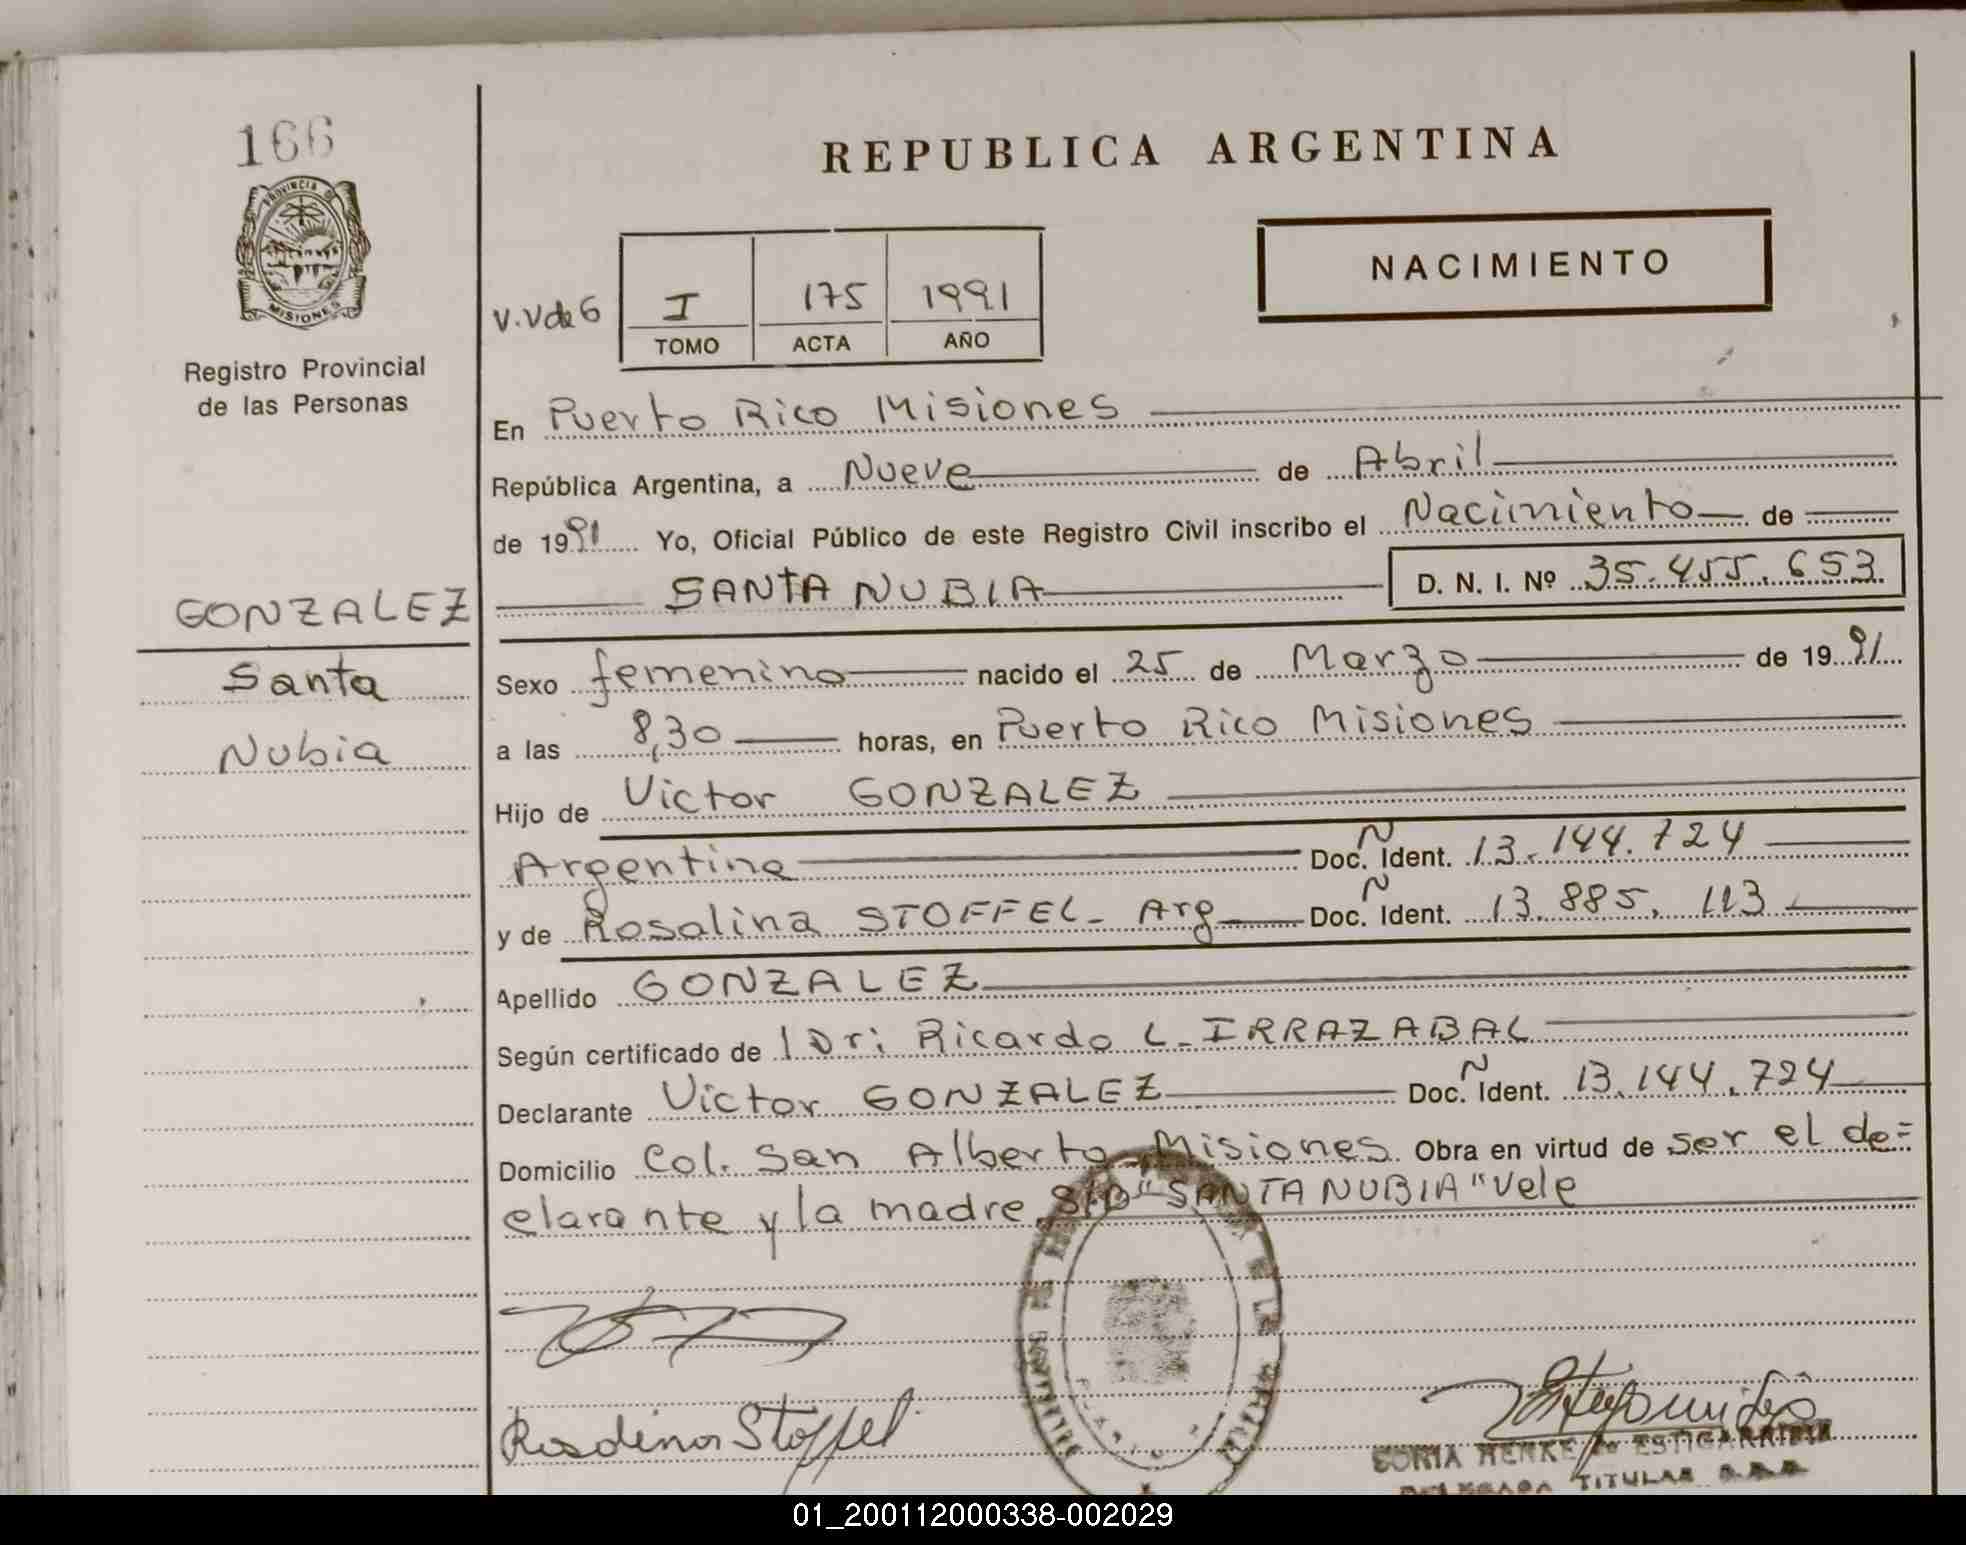 166
PROVINCIA DE
MISIONES
Registro Provincial
de las Personas
GONZALEZ
Santa
Nubia
REPUBLICA ARGENTINA
NACIMIENTO
I 175 1991
TOMO ACTA AÑO
En Puerto Rico Misiones
República Argentina, a Nueve de Abril
de 1991 Yo, Oficial Público de este Registro Civil inscribo el Nacimiento de
SANTA NUBIA D. N. I. Nº 35.455.653
Sexo femenino nacido el 25 de Marzo de 1991
a las 8,30 horas, en Puerto Rico Misiones
Hijo de Victor GONZALEZ
Argentina Doc. N Ident. 13.144.724
y de Rosalina STOFFEL- Arg Doc. N Ident. 13.885.113
Apellido GONZALEZ
Según certificado de Ricardo L. IRRAZABAL
Declarante Victor GONZALEZ Doc. N Ident. 13.144.724
Domicilio Col. San Alberto Misiones Obra en virtud de ser el de=
clarante y la madre S/B "SANTA NUBIA" Vele
Rosalina Stoffel
SONIA HENKE de ESTIGARRIBIA
DELEGADA TITULAR
01_200112000338-002029